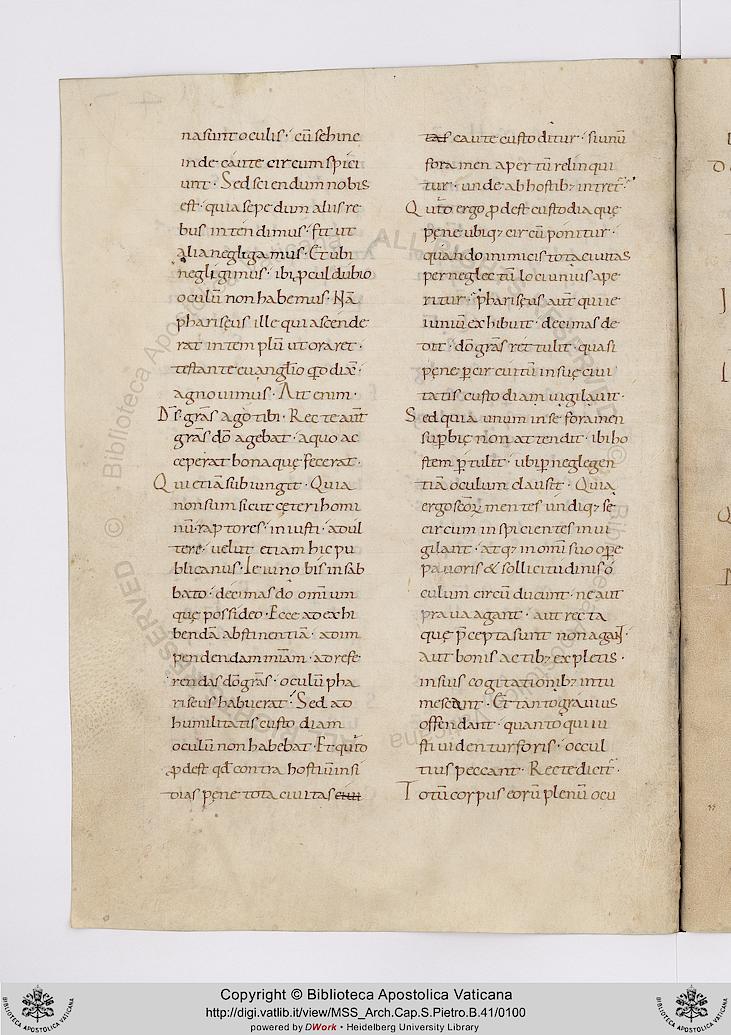 nasunt oculis· cū se hinc
inde caute circumspici
unt· Sed sciendum nobis
est· quia sepe dum aliis re
bus intendimus· fit ut
alia negligamus· Et ubi
negligimus· ibi ꝓcul dubio
oculū non habemus· Nā
pharisęus ille qui ascende
rat in templū ut oraret·
testante euanglio
agnouimus· Ait enim·
D̄s grās ago tibi· Recte aut̄
grās dō agebat· a quo ac
ceperat bona quę fecerat·
Qui etiā subiungit· Quia
non sum sicut cęteri homi
nū· raptores· iniusti· adul
teri· uelut etiam hic pu
blicanus· Ieiuno bis in sab
bato· decimas do omium
quę possideo· Ecce ad exhi
bendā abstinentiā· ad im
pendendam miām· ad refe
rendas dō grās· oculū pha
riseus habuerat· Sed ad
humilitatis custodiam
oculū non habebat· Et
ꝓdest qđ contra hostiū insi
dias pęne tota ciuitas
caute custoditur· si unū
foramen apertū relinqui
tur· unde ab hostibꝫ
ergo ꝓdest custodia quę
pęne ubiqꝫ circū ponitur·
quando inimicis tota ciuitas
per neglectū loci unius ape
ritur· pharisęus aut̄ qui ie
iuniū exhibuit· decimas de
dit· dō grās rettulit· quasi
pęne ꝑ circuitū in suę ciui
tatis custodiam uigilauit·
Sed quia unum in se foramen
supbię non attendit· ibi ho
stem ptulit· ubi p neglegen
tiā oculum clausit· Quia
ergo scōꝝ mentes undiqꝫ se
circum inspicientes inui
gilant· atqꝫ in omī suo opē
pauoris & sollicitudinis o
culum circū ducunt· ne aut
praua agant· aut recta
quę p̄cepta sunt non agant·
Aut bonis actibꝫ expletis·
in suis cogitationibꝫ intu
mescant· Et tanto grauius
offendant· quanto qui iu
sti uidentur foris· occul
tius peccant· Recte dicit̄·
Totū corpus eorū plenū ocu
© Biblioteca Apostolica Vaticana ALL RIGHTS RESERVED
Copyright © Biblioteca Apostolica Vaticana
http://digi.vatlib.it/view/MSS_Arch.Cap.S.Pietro.B.41/0100
powered by DWork • Heidelberg University Library
BIBLIOTECA APOSTOLICA VATICANA
BIBLIOTECA APOSTOLICA VATICANA